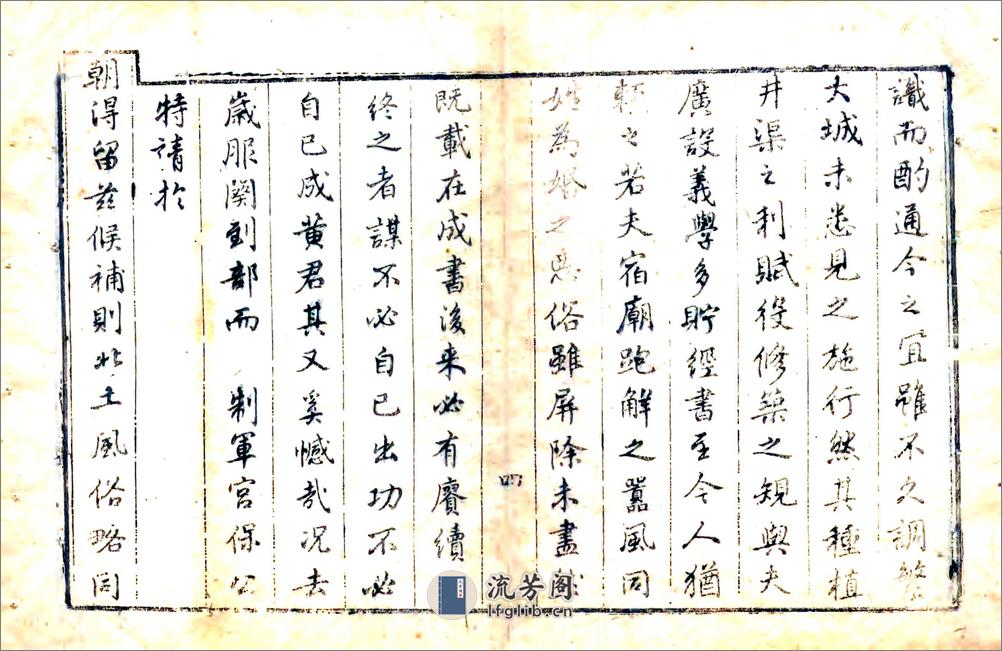 識而酌通今之宜雖不久調繁
大城未悉見之施行然其種植
井渠之利賦役修築之規與夫
廣設義學多貯經書至今人猶
賴之若夫宿廟跑解之囂風同
姓為婚之惡俗雖屏除未盡然
四
既載在成書後来必有賡續
終之者謀不必自已出功不必
自已成黄君其又奚憾哉况去
歲服闋到部而 制軍宮保公
特請於
朝得留茲候補則此土風俗略同
流芳阁
lfglib.cn